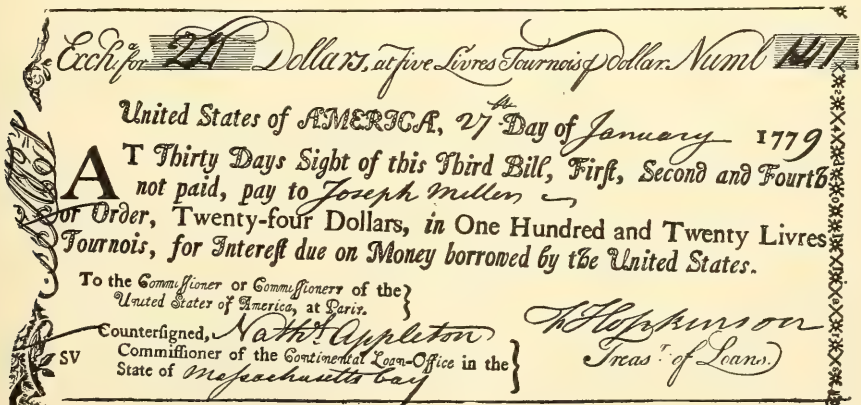 Exch.ᵃ for 24 Dollars, at five Livres Tournois ⅌ dollar. Numb. 141
United States of AMERICA, 27th Day of January 1779
AT Thirty Days Sight of this Third Bill, Firſt, Second and Fourth
not paid, pay to Joseph Miller
or Order, Twenty-four Dollars, in One Hundred and Twenty Livres
Tournois, for Intereſt due on Money borrowed by the United States.
To the Commiſſioner or Commiſſioners of the
United States of America, at Paris.
Counterſigned, Nathl. Appleton
Commiſſioner of the Continental Loan-Office in the
State of Maſsachusetts bay
SV
F Hopkinson
Treasr. of Loans.